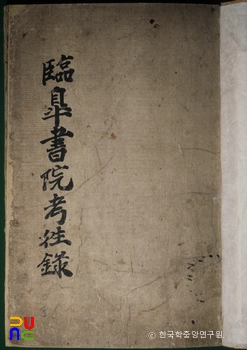 臨皐書院考往錄
© 한국학중앙연구원